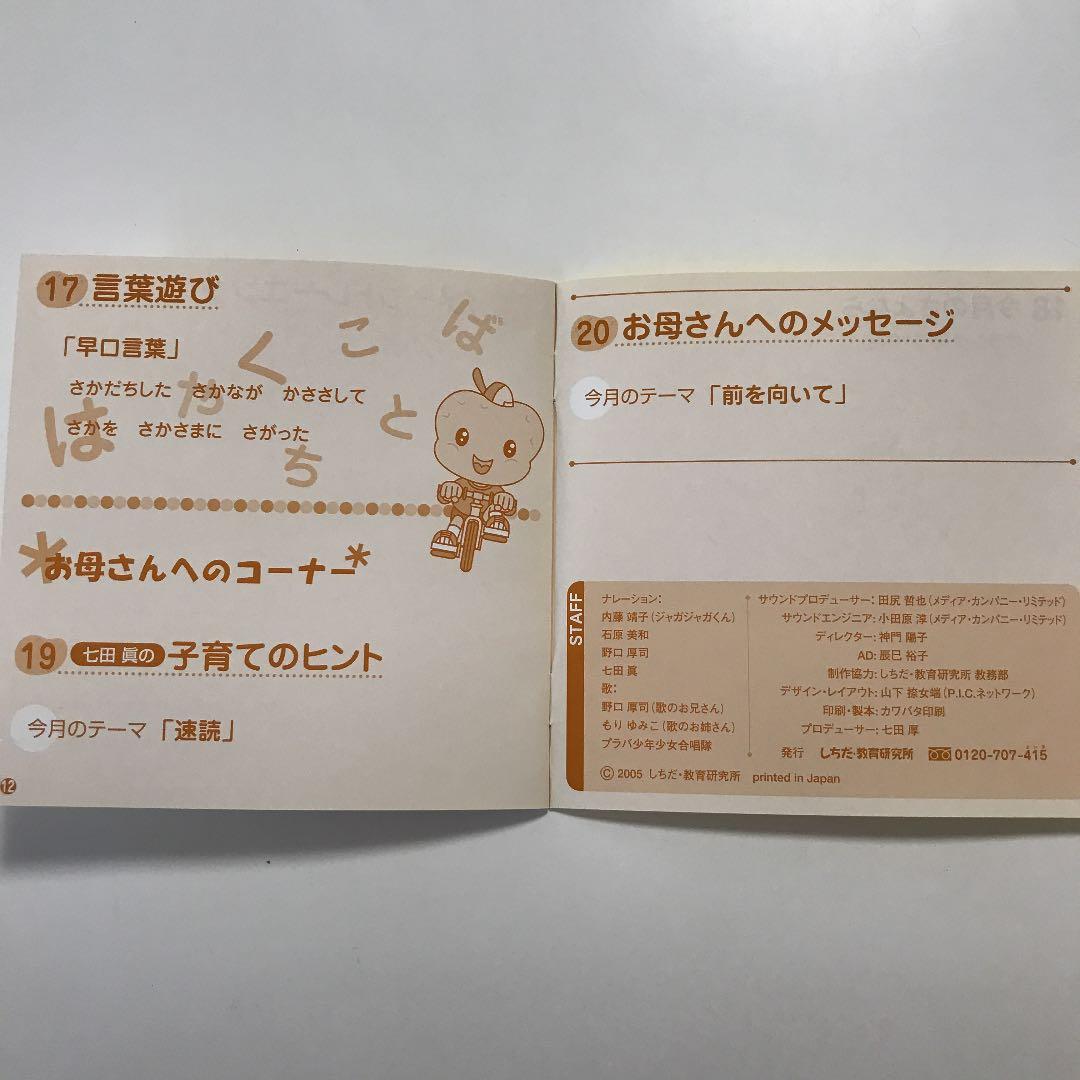 17 言葉遊び
「早口言葉」
さかだちした さかなが かささして
さかを さかさまに さがった
は や く こ と ば
ち
*お母さんへのコーナー*
19 七田 眞の 子育てのヒント
今月のテーマ 「速読」
12
20 お母さんへのメッセージ
今月のテーマ 「前を向いて」
STAFF
ナレーション:
内藤 靖子(ジャガジャガくん)
石原 美和
野口 厚司
七田 眞
歌:
野口 厚司(歌のお兄さん)
もり ゆみこ(歌のお姉さん)
プラバ少年少女合唱隊
サウンドプロデューサー: 田尻 哲也(メディア・カンパニー・リミテッド)
サウンドエンジニア: 小田原 淳(メディア・カンパニー・リミテッド)
ディレクター: 神門 陽子
AD: 辰巳 裕子
制作協力: しちだ・教育研究所 教務部
デザイン・レイアウト: 山下 捺女端(P.I.C.ネットワーク)
印刷・製本: カワバタ印刷
プロデューサー: 七田 厚
発行 しちだ・教育研究所 0120-707-415
© 2005 しちだ・教育研究所 printed in Japan